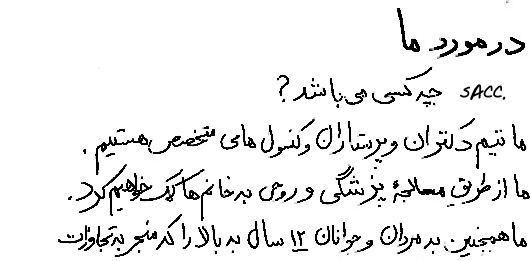 در مورد ما
SACC. چه کسی می باشد؟
ما تیم دکتران و پرستاران و کنسول های متخصص هستیم.
ما از طریق معالجهٔ پزشکی و روحی به خانم ها کمک خواهیم کرد.
ما همچنین به مردان و جوانان ۱۲ سال به بالا را که منجر به تجاوزات